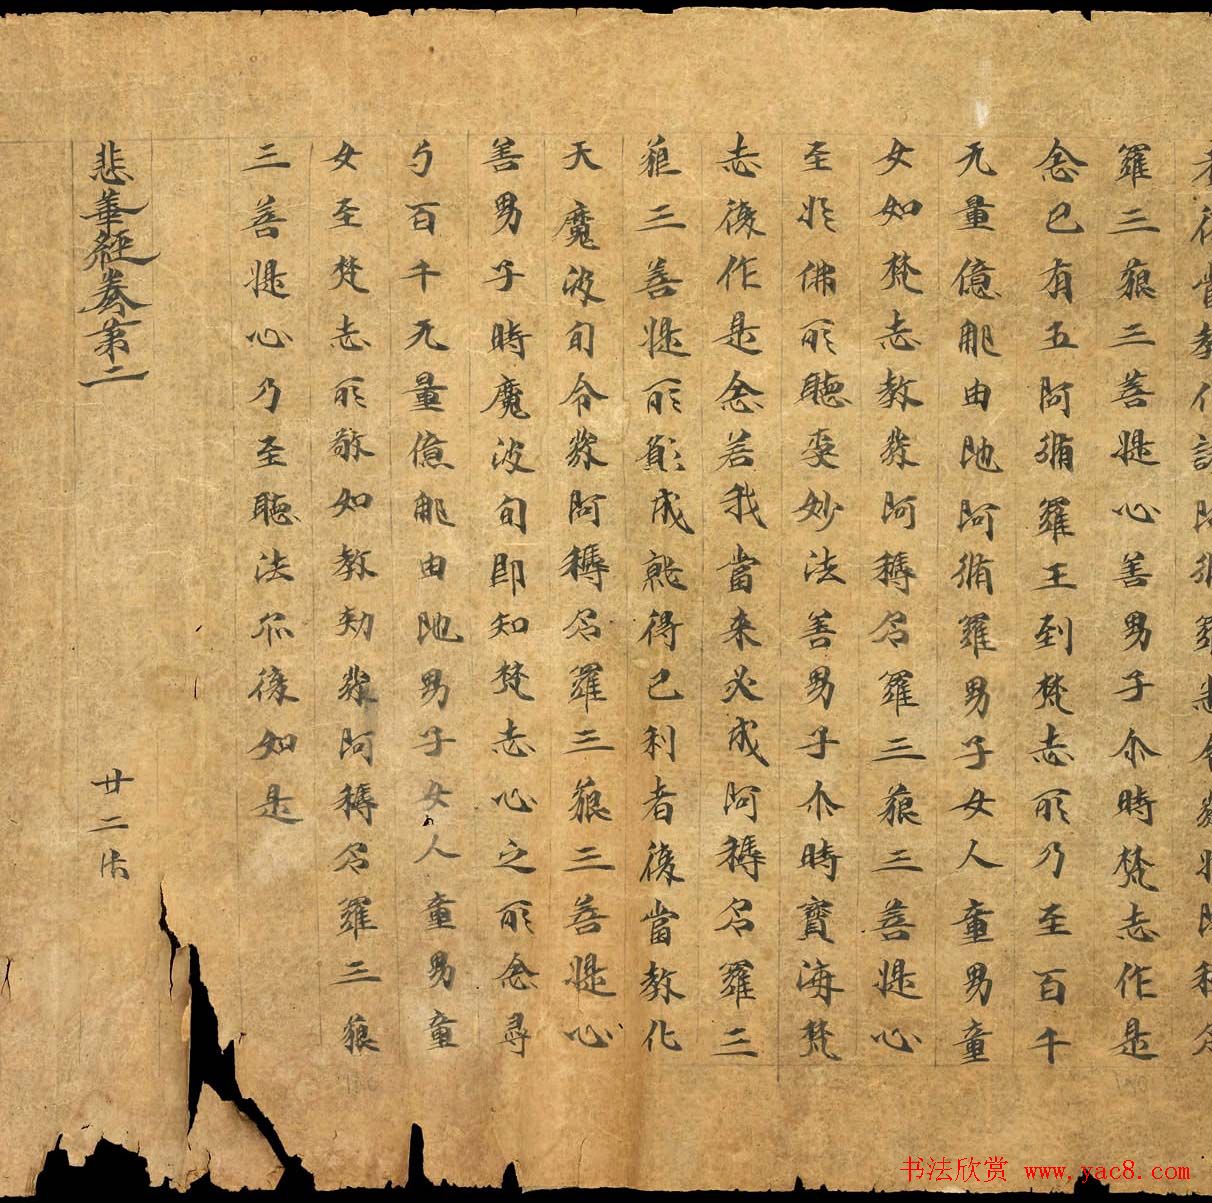 羅三藐三菩提心善男子尒時梵志作是
念已有五阿脩羅王到梵志所乃至百千
无量億那由他阿脩羅男子女人童男童
女如梵志教發阿耨多羅三藐三菩提心
至於佛所聽受妙法善男子尒時寶海梵
志復作是念若我當来必成阿耨多羅三
藐三菩提所願成就得己利者復當教化
天魔波旬令發阿耨多羅三藐三菩提心
善男子時魔波旬即知梵志心之所念尋
与百千无量億那由他男子女人童男童
女至梵志所敬如教勅發阿耨多羅三藐
三菩提心乃至聽法亦復如是
悲華經卷第二
廿二帋
书法欣赏 www.yac8.com